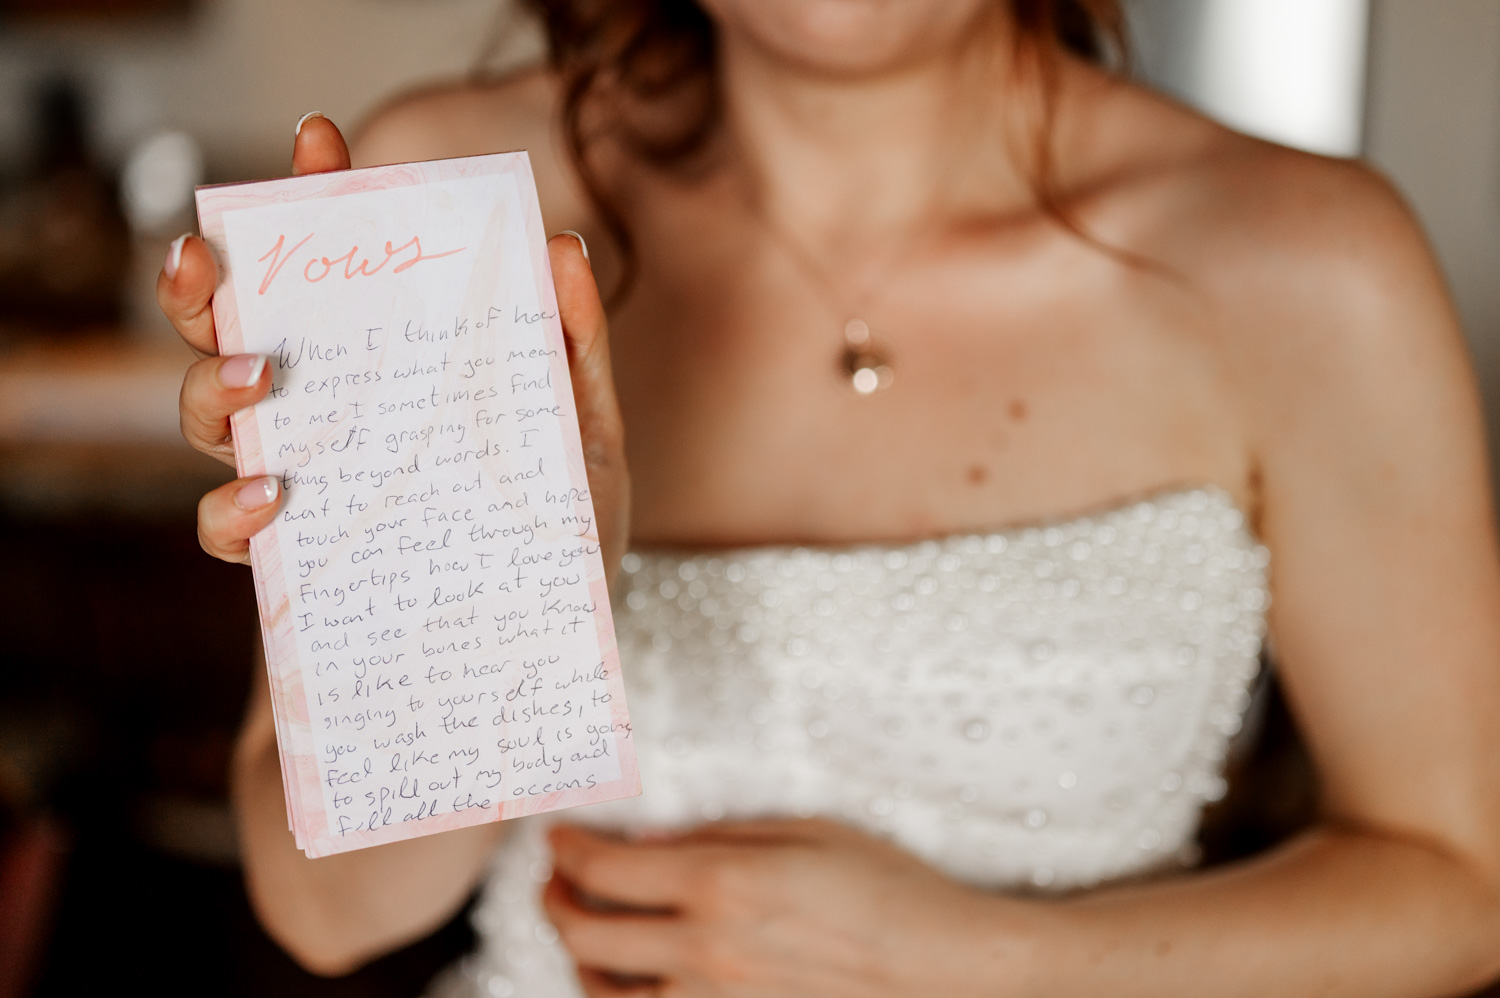 Vows
When I think of how
to express what you mean
to me I sometimes find
myself grasping for some
thing beyond words. I
want to reach out and
touch your face and hope
you can feel through my
fingertips how I love you
I want to look at you
and see that you know
in your bones what it
is like to hear you
singing to yourself while
you wash the dishes, to
feel like my soul is going
to spill out my body and
fill all the oceans